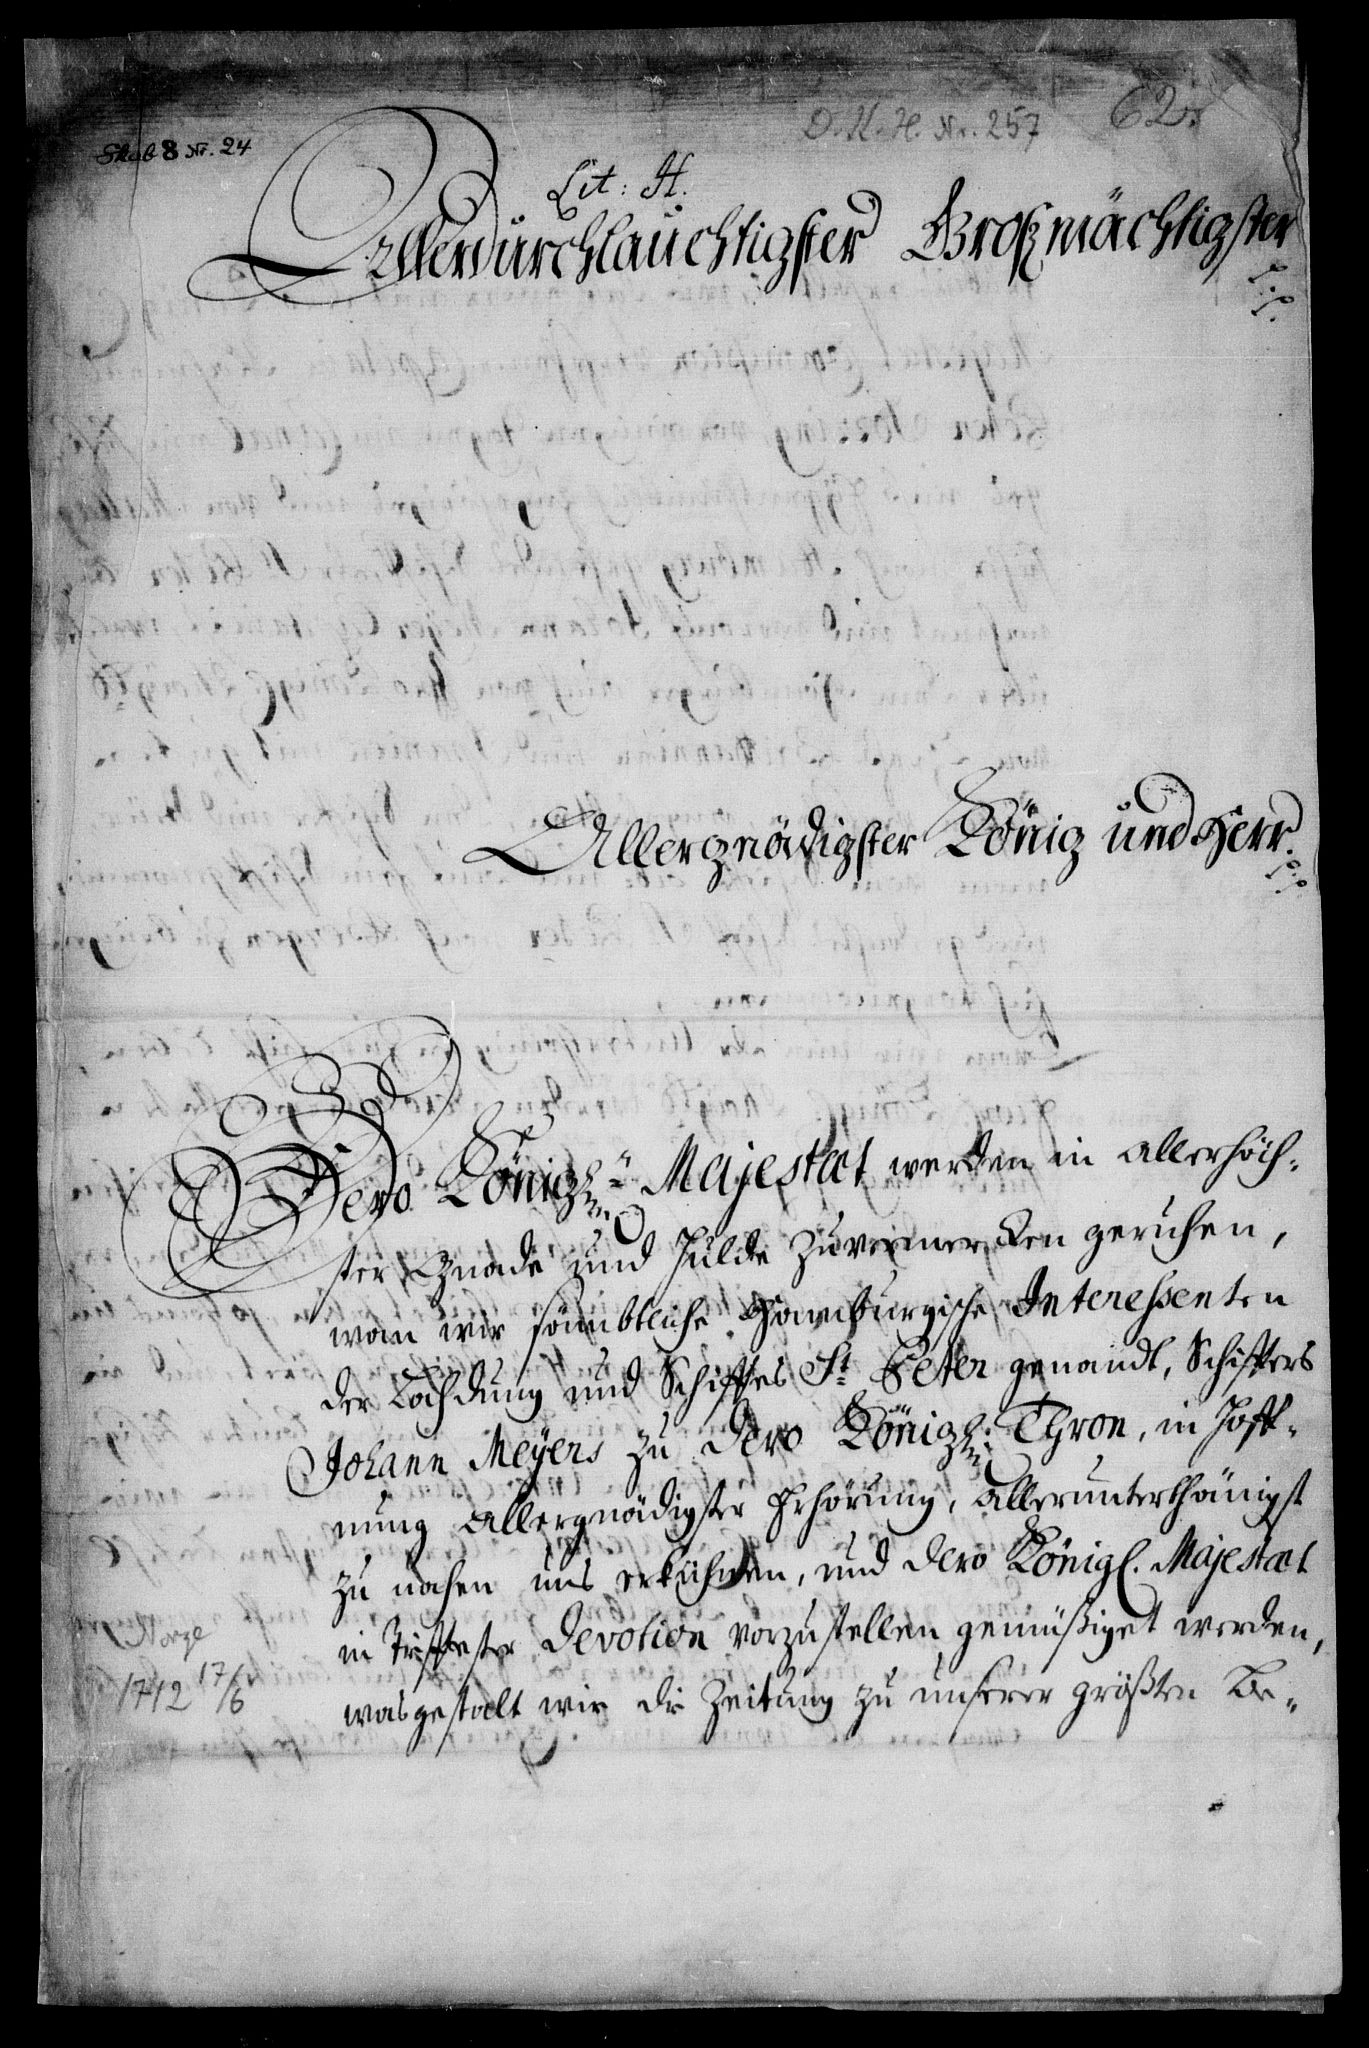 Skab 8 Nr. 24
D. K. H. Nr. 257
62.
Lit: H.
Allerdurchlauchtigster Großmächtigster
Allergnädigster König und Herr.
Dero Königl. Majestæt werden in allerhöch-
ster Gnade und Hulde zuvermercken geruhen,
wan wir sämbtliche Hamburgische Interessenten
der Lachdung und Schiffes St. Peter genandt, Schiffers
Johann Meyers zu Dero Königl. Thron, in Hoff-
nung allergnädigster Erhörung, allerunterthänigst
zu nahen uns erkühnen, und Dero Königl. Majestæt
in tieffester Devotion vorzustellen gemüßiget werden,
wasgestalt wir die Zeitung zu unserer größten Be-
Norge
1712 17/6